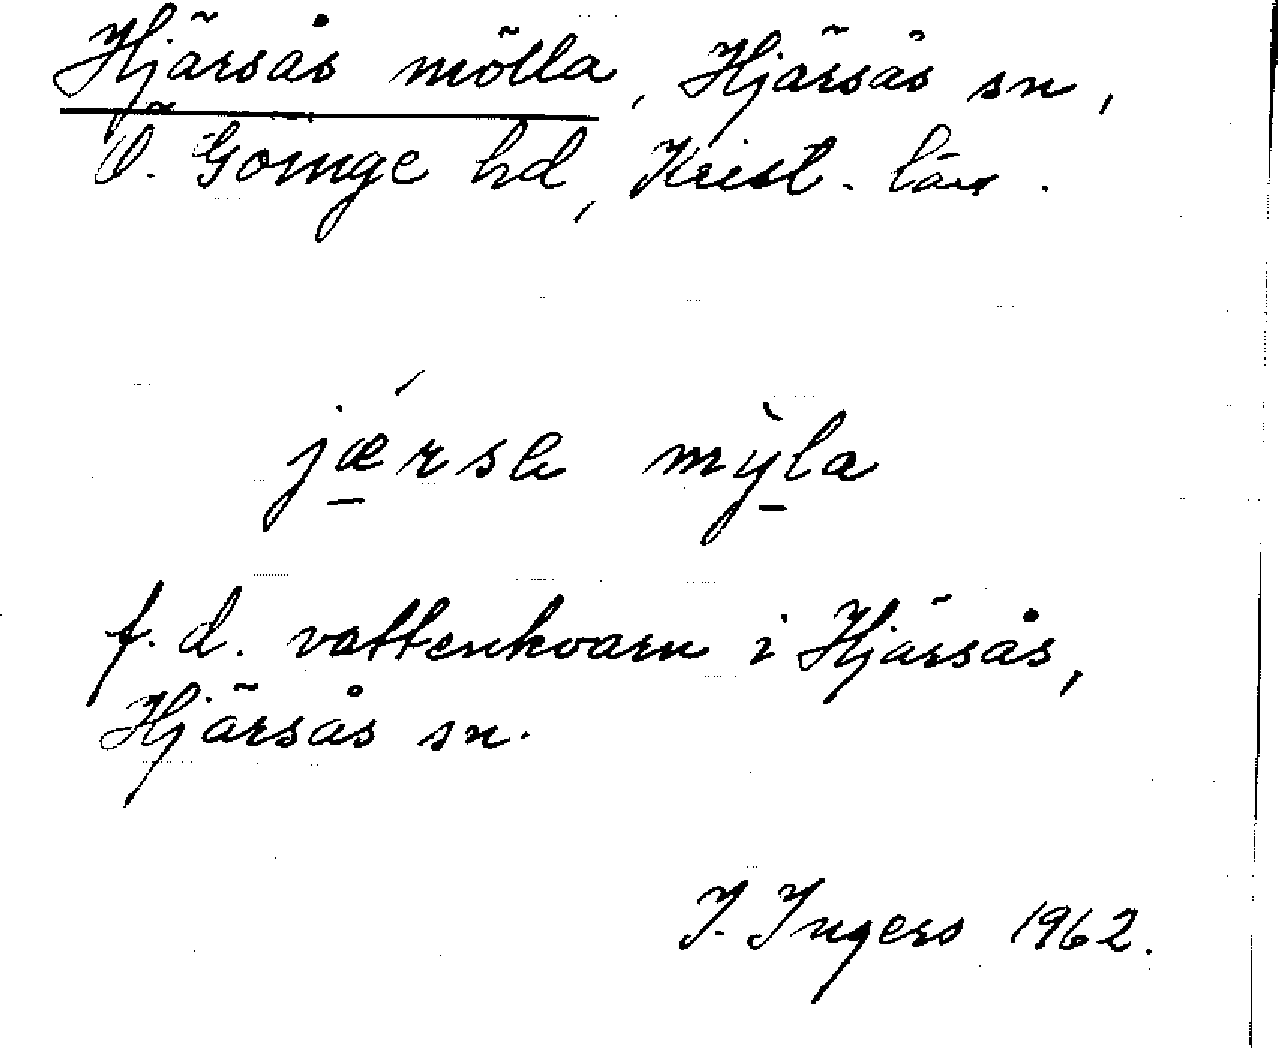 Hjärsås mölla, Hjärsås sn,
Ö. Göinge hd, Krist. län.
jǽrsa mỳla
f. d. vattenkvarn i Hjärsås,
Hjärsås sn.
I. Ingers 1962.